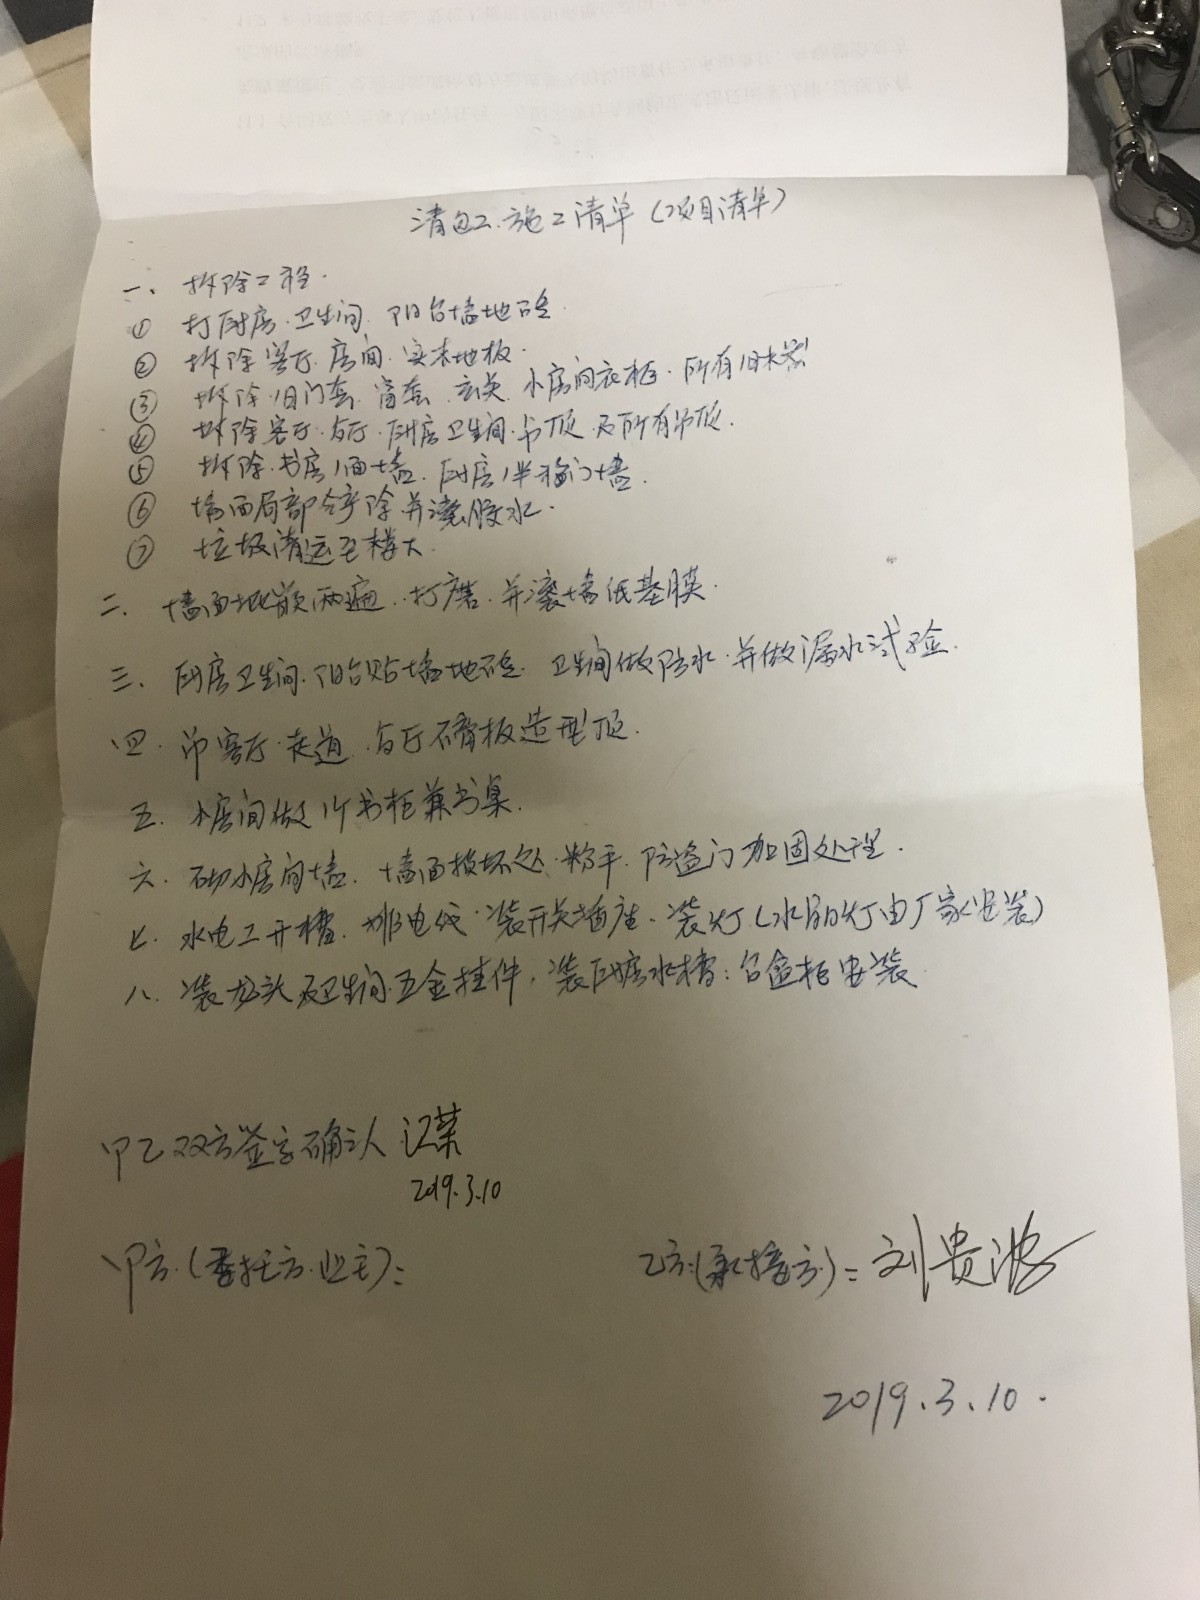 清包工施工清单(项目清单)
一、拆除工程.
① 打厨房.卫生间.阳台墙地砖.
② 拆除客厅.房间.实木地板.
③ 拆除旧门套.窗套.玄关.小房间衣柜.所有旧木器
④ 拆除客厅.餐厅.厨房卫生间.吊顶及所有吊顶.
⑤ 拆除书房1面墙.厨房1半移门墙.
⑥ 墙面局部铲除并滚胶水.
⑦ 垃圾清运至楼下.
二.墙面批嵌两遍.打磨.并滚墙纸基膜.
三.厨房卫生间.阳台贴墙地砖.卫生间做防水.并做漏水试验.
四.吊客厅.走道.餐厅石膏板造型顶.
五.小房间做1个书柜兼书桌.
六.砌小房间墙.墙面损坏处.粉平.防盗门加固处理.
七.水电工开槽.排电线.装开关插座.装灯(水晶灯由厂家安装)
八.装龙头及卫生间五金挂件.装厨房水槽:台盆柜安装.
甲乙双方签字确认 江荣
2019.3.10
甲方.(委托方.业主):
乙方:(承接方):刘贵波
2019.3.10.